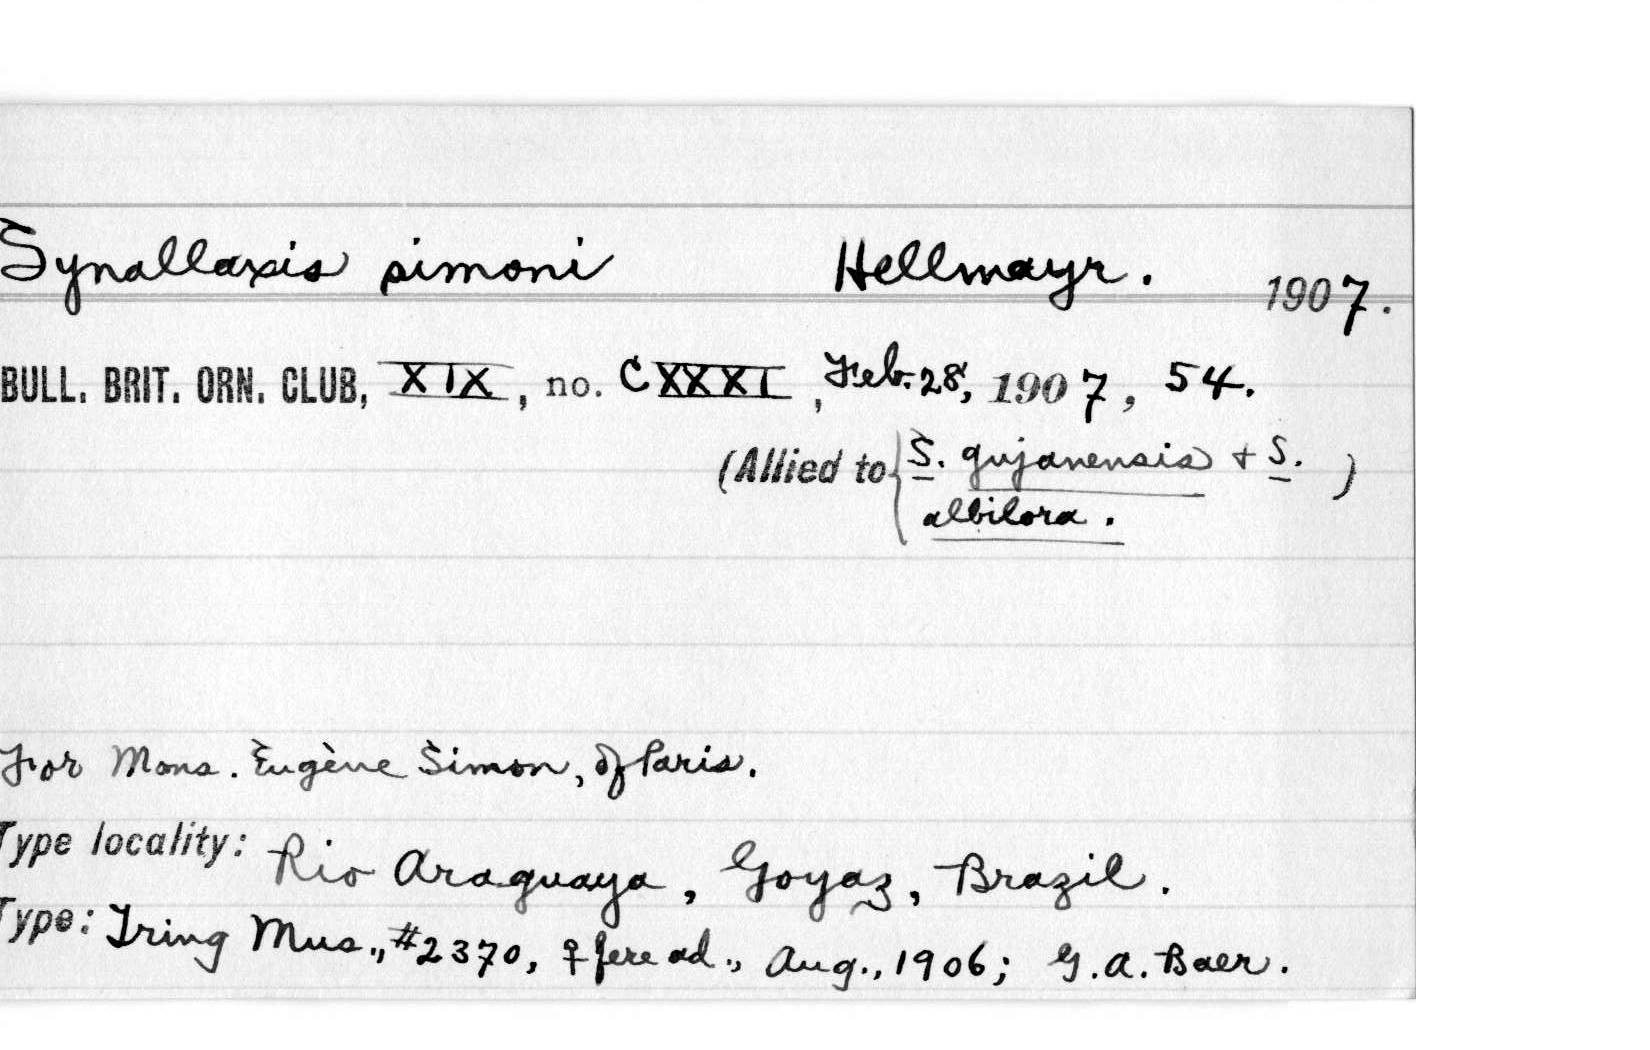 Synallaxis simoni Hellmayr. 1907.
BULL. BRIT. ORN. CLUB, XIX, no. CXXXI, Feb. 28, 1907, 54.
(Allied to { S. gujanensis + S. )
albilora.
For Mons. Eugène Simon, of Paris.
Type locality: Rio Araguaya, Goyaz, Brazil.
Type: Tring Mus., #2370, ♀ fere ad., Aug., 1906; G. A. Baer.